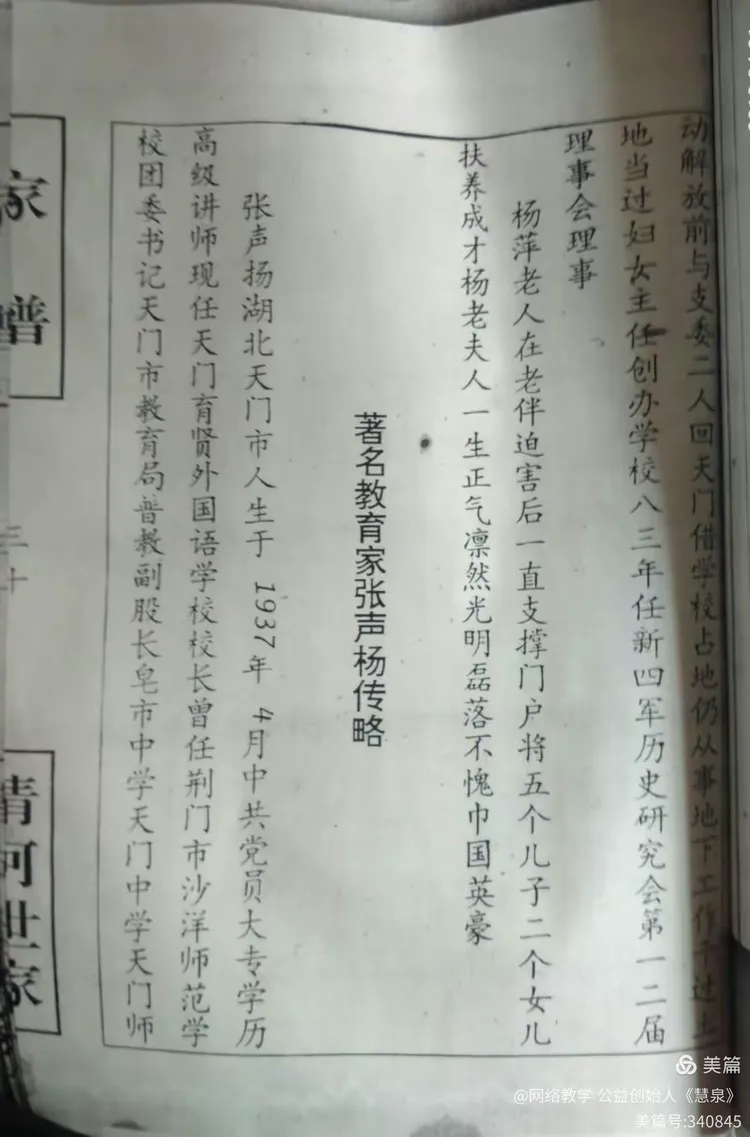 动解放前与支委二人回天门借学校占地仍从事地下工作干过土
地当过妇女主任创办学校八三年任新四军历史研究会第一二届
理事会理事
杨萍老人在老伴迫害后一直支撑门户将五个儿子二个女儿
扶养成才杨老夫人一生正气凛然光明磊落不愧巾国英豪
著名教育家张声杨传略
张声扬湖北天门市人生于1937年4月中共党员大专学历
高级讲师现任天门育贤外国语学校校长曾任荆门市沙洋师范学
校团委书记天门市教育局普教副股长皂市中学天门中学天门师
家谱
三十
清河世家
美篇
@网络教学 公益创始人《慧泉》
美篇号:340845